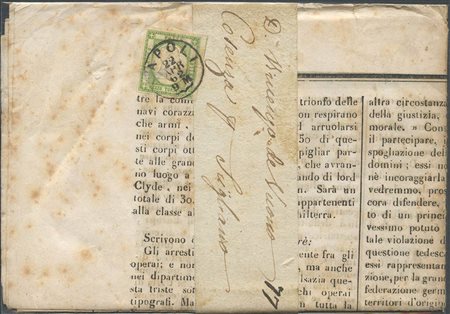 APOLI
22
APR
tre la com
navi corazz
che armi
nei corpi de
sti corpi ott
te alle grand
no luogo a
Clyde, nei
totale di 30.
alla classe a
Scrivono d
Gli arresti
operai; e non
nei dipartime
sta triste sor
tipografi. Ma
trionfo delle
on respirano
arruolarsi
50 di que-
pigliar par-
che avran-
ando di lord
n. Sarà un
ppartenenti
hilterra.
rè:
ente fra gli
ma anche
isazia que-
chi operai
n tutta la
altra circostanza
della giustizia,
morale. » Cons
il partecipare,
spogliazione del
domini; essi no
nè incoraggiarla
vedremmo, pros
cora difendere,
to di un princi
vessimo potuto
tale violazione d
questione tedesc
essi rappresentar
zione, per la grand
federazione germ
territori d'origin
Cosenza p Scigliano